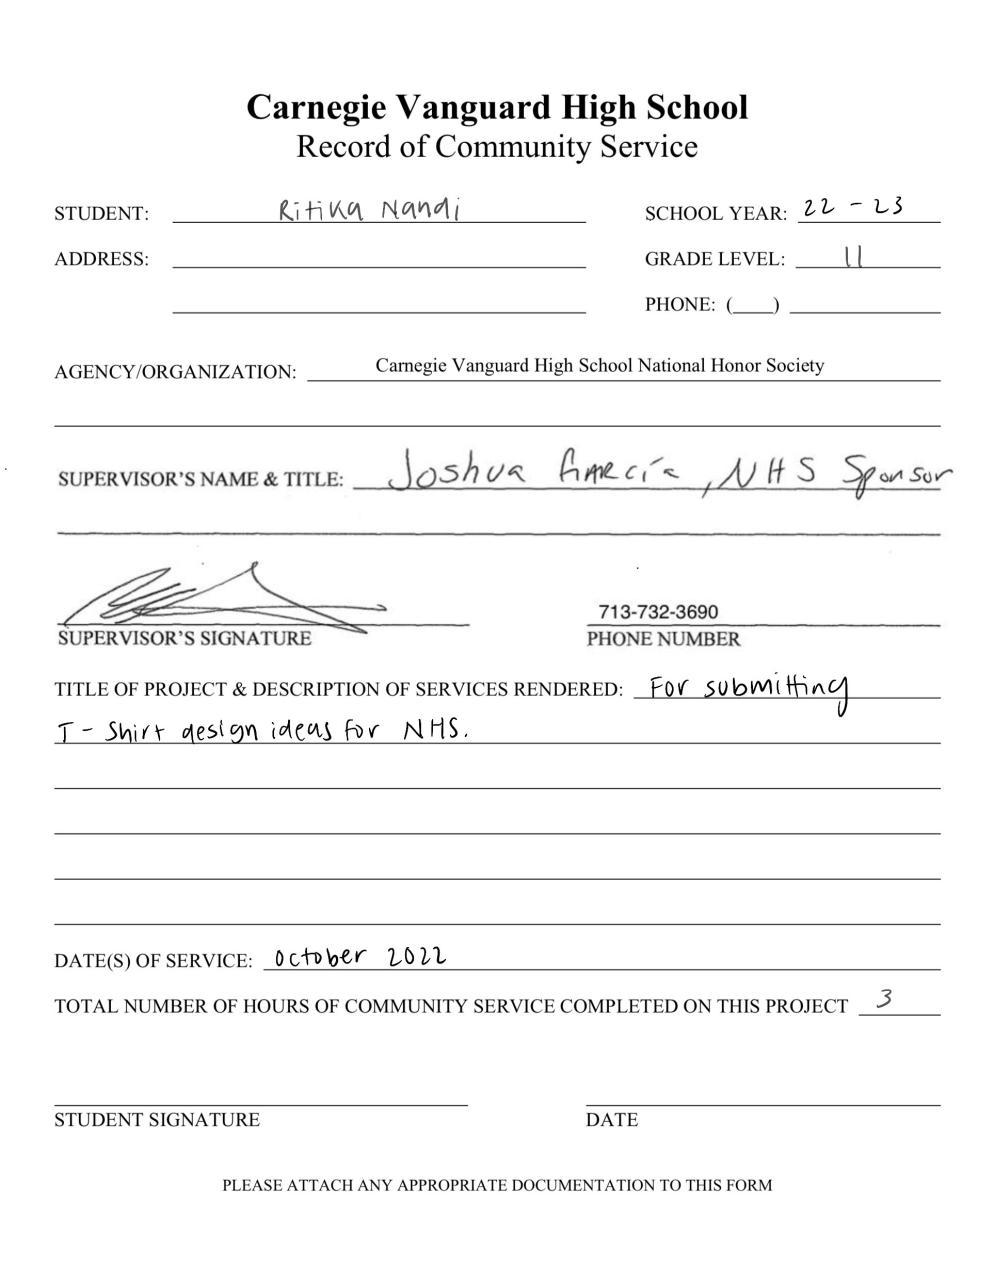 Carnegie Vanguard High School
Record of Community Service
STUDENT: Ritika Nandi SCHOOL YEAR: 22 - 23
ADDRESS: GRADE LEVEL: 11
PHONE: (___)
AGENCY/ORGANIZATION: Carnegie Vanguard High School National Honor Society
SUPERVISOR'S NAME & TITLE: Joshua García, NHS Sponsor
713-732-3690
SUPERVISOR'S SIGNATURE PHONE NUMBER
TITLE OF PROJECT & DESCRIPTION OF SERVICES RENDERED: For submitting
T - Shirt design ideas for NHS.
DATE(S) OF SERVICE: October 2022
TOTAL NUMBER OF HOURS OF COMMUNITY SERVICE COMPLETED ON THIS PROJECT 3
STUDENT SIGNATURE DATE
PLEASE ATTACH ANY APPROPRIATE DOCUMENTATION TO THIS FORM